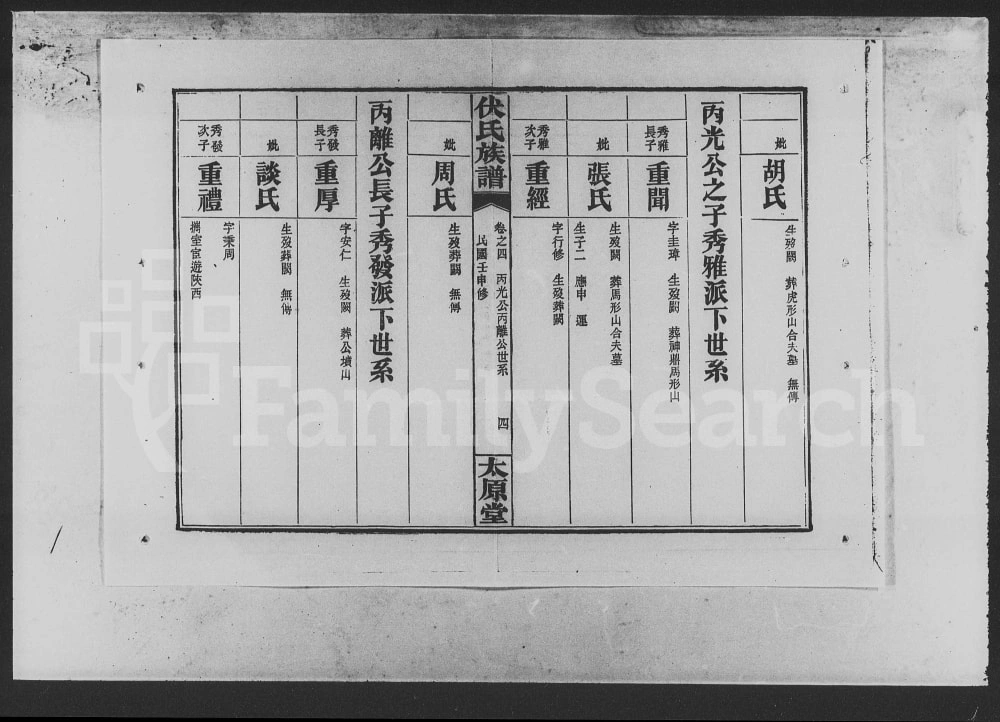 妣
胡氏
生歿闕 葬虎形山合夫墓 無傳
丙光公之子秀雅派下世系
秀雅長子
重聞
字圭璋 生歿闕 葬神鼎馬形山
妣
張氏
生歿闕 葬馬形山合夫墓
生子二 應申 運
秀雅次子
重經
字行修 生歿葬闕
伏氏族譜
卷之四 丙光公丙離公世系 四
民國壬申修
太原堂
妣
周氏
生歿葬闕 無傳
丙離公長子秀發派下世系
秀發長子
重厚
字安仁 生歿闕 葬公墳山
妣
談氏
生歿葬闕 無傳
秀發次子
重禮
字秉周
攜室宦遊陝西
FamilySearch